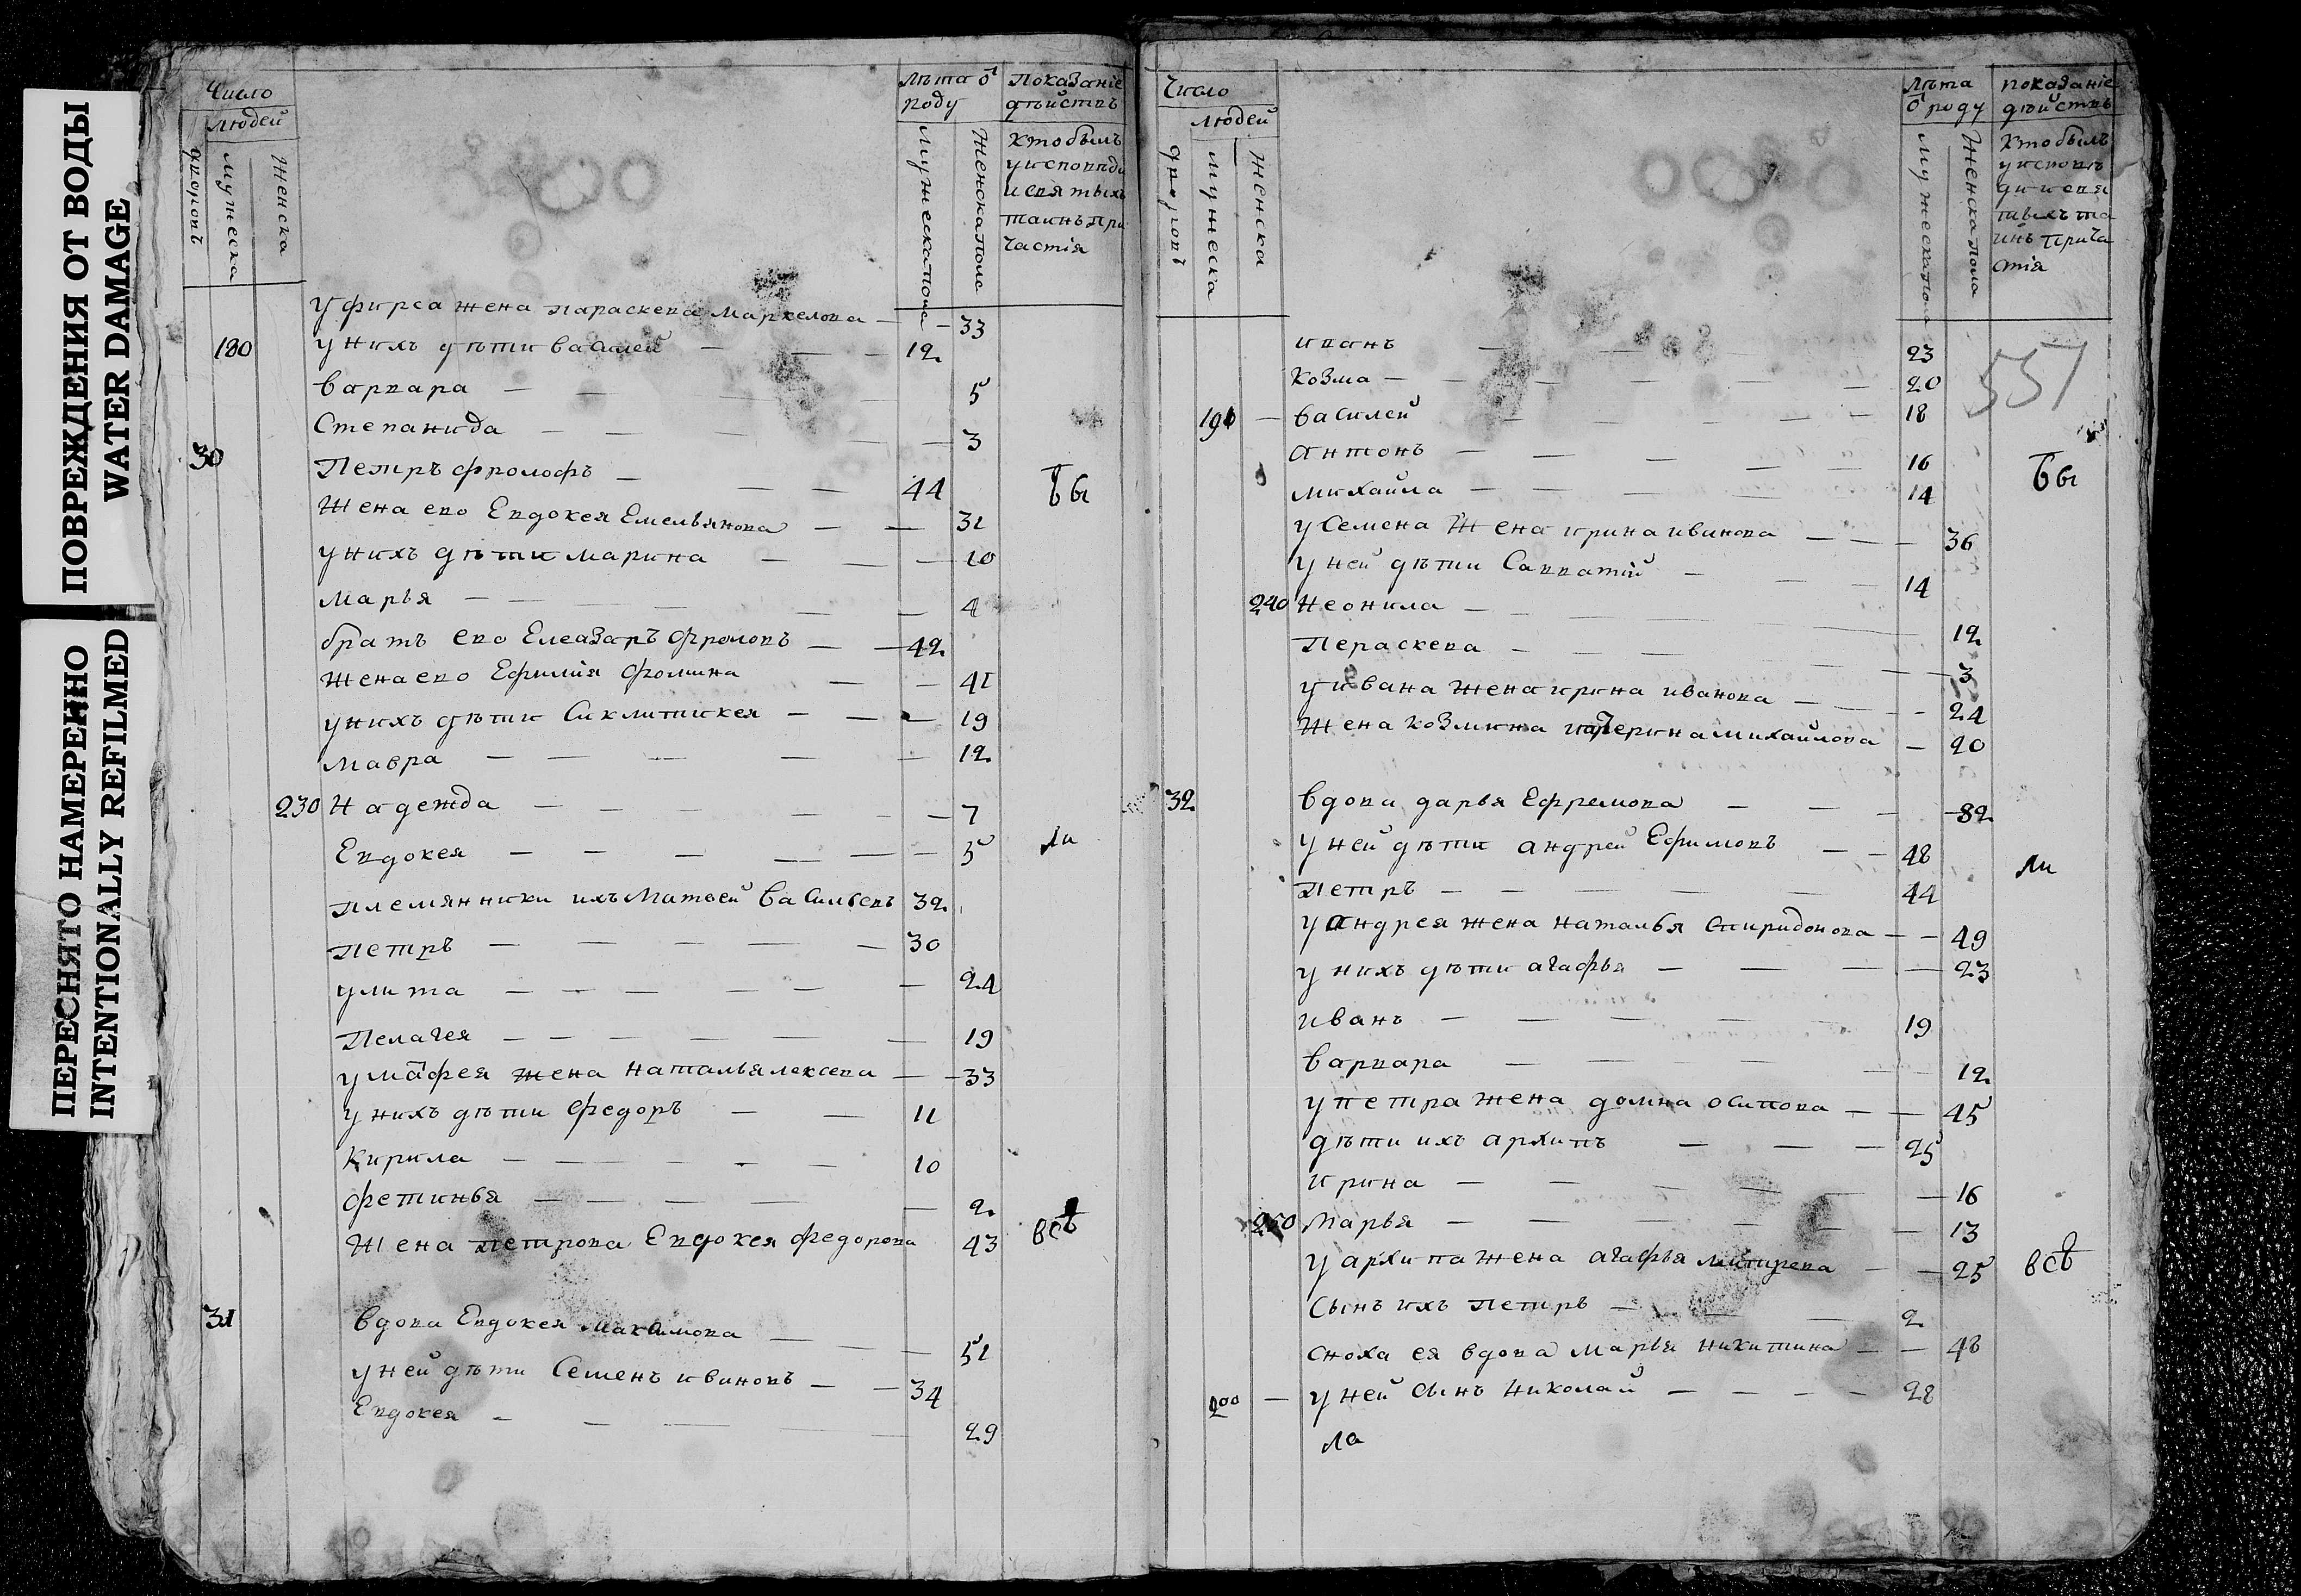 ПОВРЕЖДЕНИЯ ОТ ВОДЫ
WATER DAMAGE
ПЕРЕСНЯТО НАМЕРЕННО
INTENTIONALLY REFILMED
Число
людей
дворовъ
мужеска
женска
Лѣта ѿ роду
мужеска пола
женска пола
Показаніе дѣйствъ
кто былъ
у исповѣди
и святыхъ
таинъ при
частія
у фирса жена параскева маркелова — 33
180 у нихъ дѣти василей — 12
варвара — 5
Степанида — 3
30 Петръ фролофъ — 44
Жена ево Евдокея Емельянова — 31
у нихъ дѣти марина — 10
марья — 4
братъ ево Елеазаръ фроловъ — 42
жена ево Ефимія фомина — 41
у нихъ дѣти Сиклитикея — 19
мавра — 12
230 Надежда — 7
Евдокея — 5
племянники ихъ Матвей Васильевъ 32
петръ — 30
улита — 24
Пелагея — 19
у маѳфея жена наталья лексева — 33
у нихъ дѣти федоръ — 11
Кирила — 10
фетинья — 2
Жена петрова Евдокея федорова 43
31 вдова Евдокея максимова — 51
у ней дѣти Семенъ ивановъ — 34
Евдокея — 29
Бы
ли
всѣ
Число
людей
дворовъ
мужеска
женска
Лѣта
ѿ роду
мужеска пола
женска пола
показаніе
дѣйствъ
кто былъ
у исповѣ
ди и свя
тыхъ та
инъ прича
стія
557
иванъ — 23
козма — 20
190 — василей — 18
антонъ — 16
михайла — 14
у Семена Жена ирина ивинова — 36
у ней дѣти Савватій — 14
240 Неонила — 12
Пераскева — 3
у ивана жена ирина иванова — 24
Жена козмина катерина михайлова — 20
32 вдова дарья Ефремова — 82
у ней дѣти андрей Ефимовъ — 48
петръ — 44
у андрея жена наталья спиридонова — 49
у нихъ дѣти агафья — 23
иванъ — 19
варвара — 12
у петра жена домна осипова — 45
дѣти ихъ архипъ — 25
ирина — 16
250 марья — 13
у архипа жена агафья митрева — 25
сынъ ихъ петръ — 2
сноха ея вдова марья никитина — 48
200 — у ней сынъ николай — 28
ла
Бы
ли
всѣ